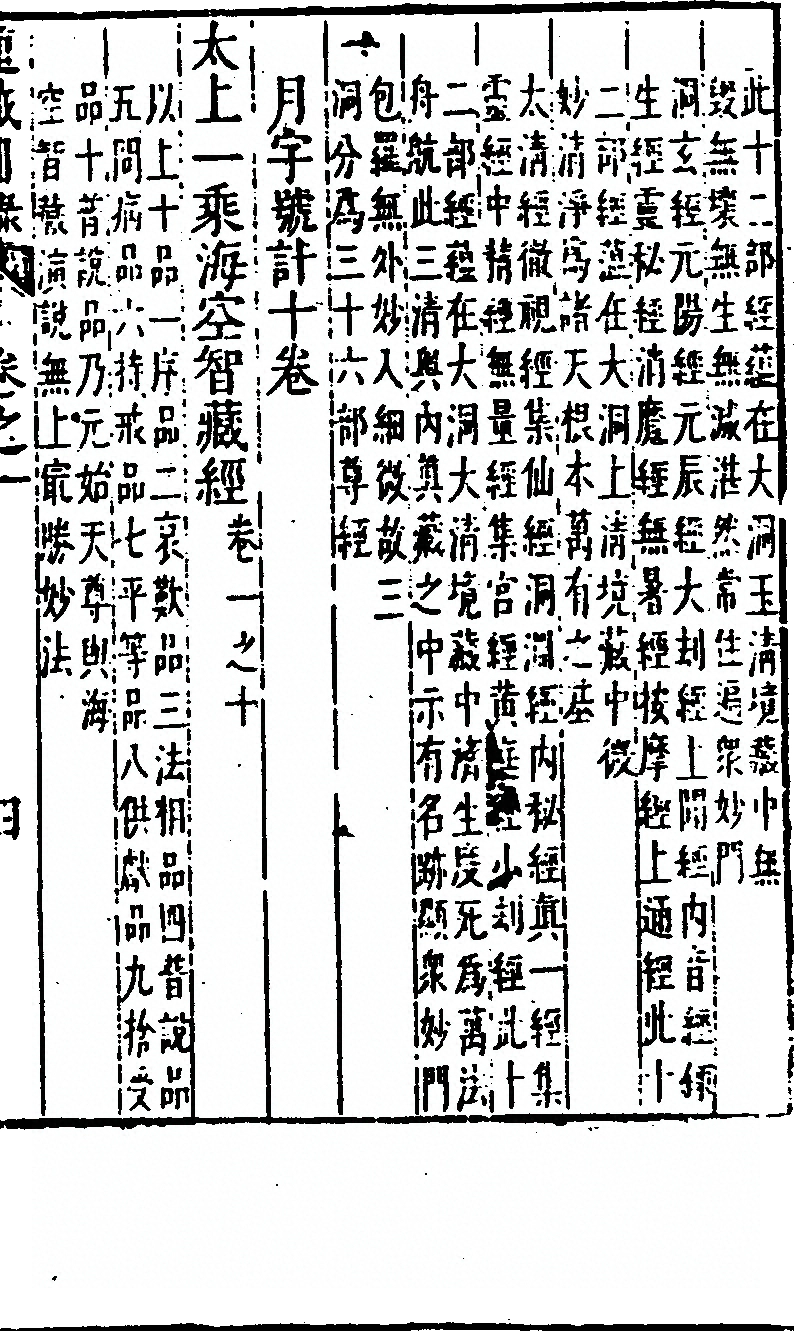 此十二部經蘊在大洞玉清境藏中無
毀無壞無生無滅湛然常住追衆妙門
洞玄經元陽經元辰經大刦經上開經內音經錄
生經靈秘經消魔經無暑經按摩經上通經此十
二部經蘊在大洞上清境藏中微
妙清淨爲諸天根本萬有之基
太清經徹視經集仙經洞淵經內秘經眞一經集
靈經中精經無量經集宮經黃庭經小刦經此十
二部經蘊在大洞大清境藏中濟生度死爲萬法
舟航此三清與內眞藏之中示有名跡顯衆妙門
包羅無外妙入細微故三
洞分爲三十六部尊經
月字號計十卷
太上一乘海空智藏經卷一之十
以上十品一序品二哀歎品三法相品四普說品
五問病品六持戒品七平等品八供獻品九捨受
品十普說品乃元始天尊與海
空智藏演說無上最勝妙法
道藏目錄
卷之一
四